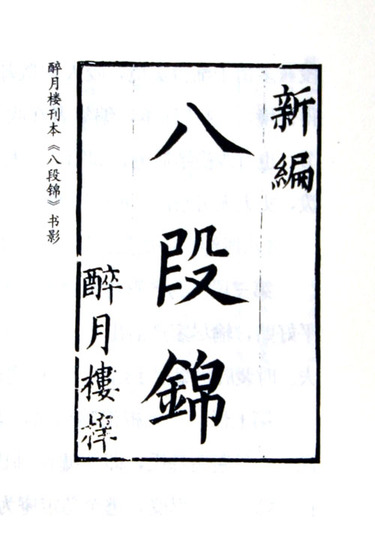 新編
八段錦
醉月樓梓
醉月楼刊本《八段锦》书影